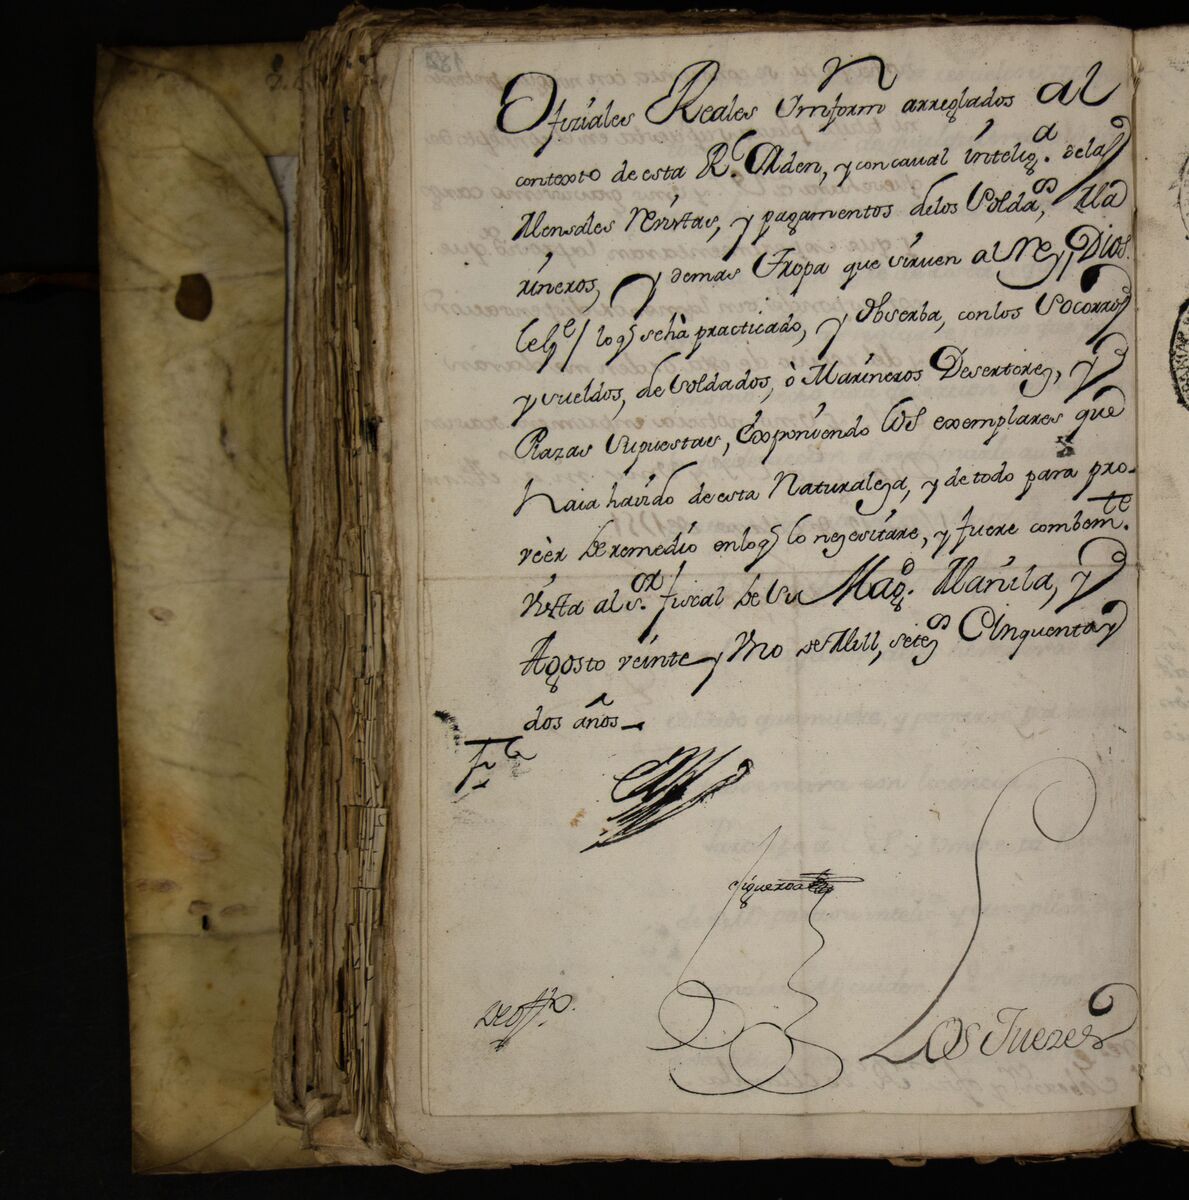 Ofiziales Reales Ymformn arreglados al
contexto de esta Rl. Orden, y con caval inteliga. de las
Mensales Revistas, y pagamentos de los Soldaos, Ma
rineros, y demas Tropa que sirven al Rey, Dios
lo q sehà practicado, y observa, con los Socorros
y sueldos, de Soldados, ò Marineros Desertores, y
Plazas supuestas, Exponiendo los exemplares que
haia havido de esta Naturaleza, y de todo para pro-
veèr de remedio en lo q lo nezesitare, y fuere combemte.
Vista al sor. fiscal de su Magd. Manila, y
Agosto veinte y Uno de Mill, seteos Cinquenta y
dos años
figueroa
De offo.
Los Juezes